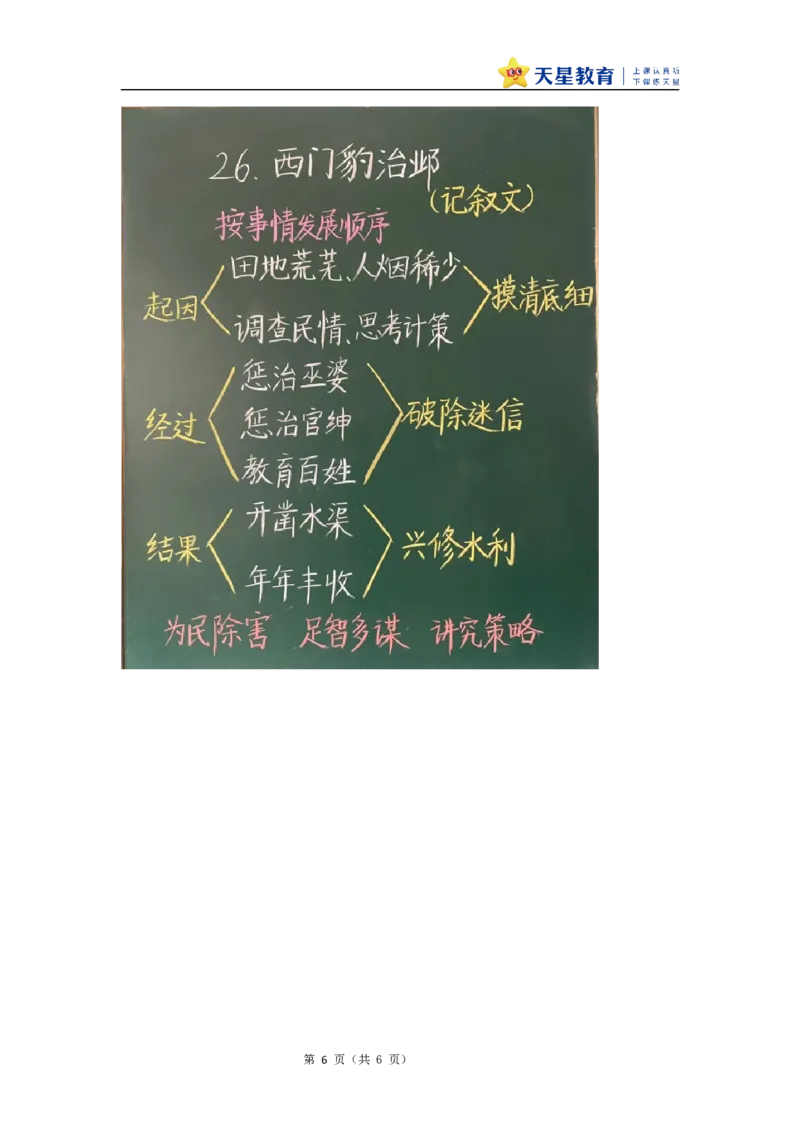 天星教育
上课认真听
下课练天星
26.西门豹治邺
(记叙文)
按事情发展顺序
起因
田地荒芜、人烟稀少
调查民情、思考计策
摸清底细
经过
惩治巫婆
惩治官绅
教育百姓
破除迷信
结果
开凿水渠
年年丰收
兴修水利
为民除害 足智多谋 讲究策略
第 6 页（共 6 页）